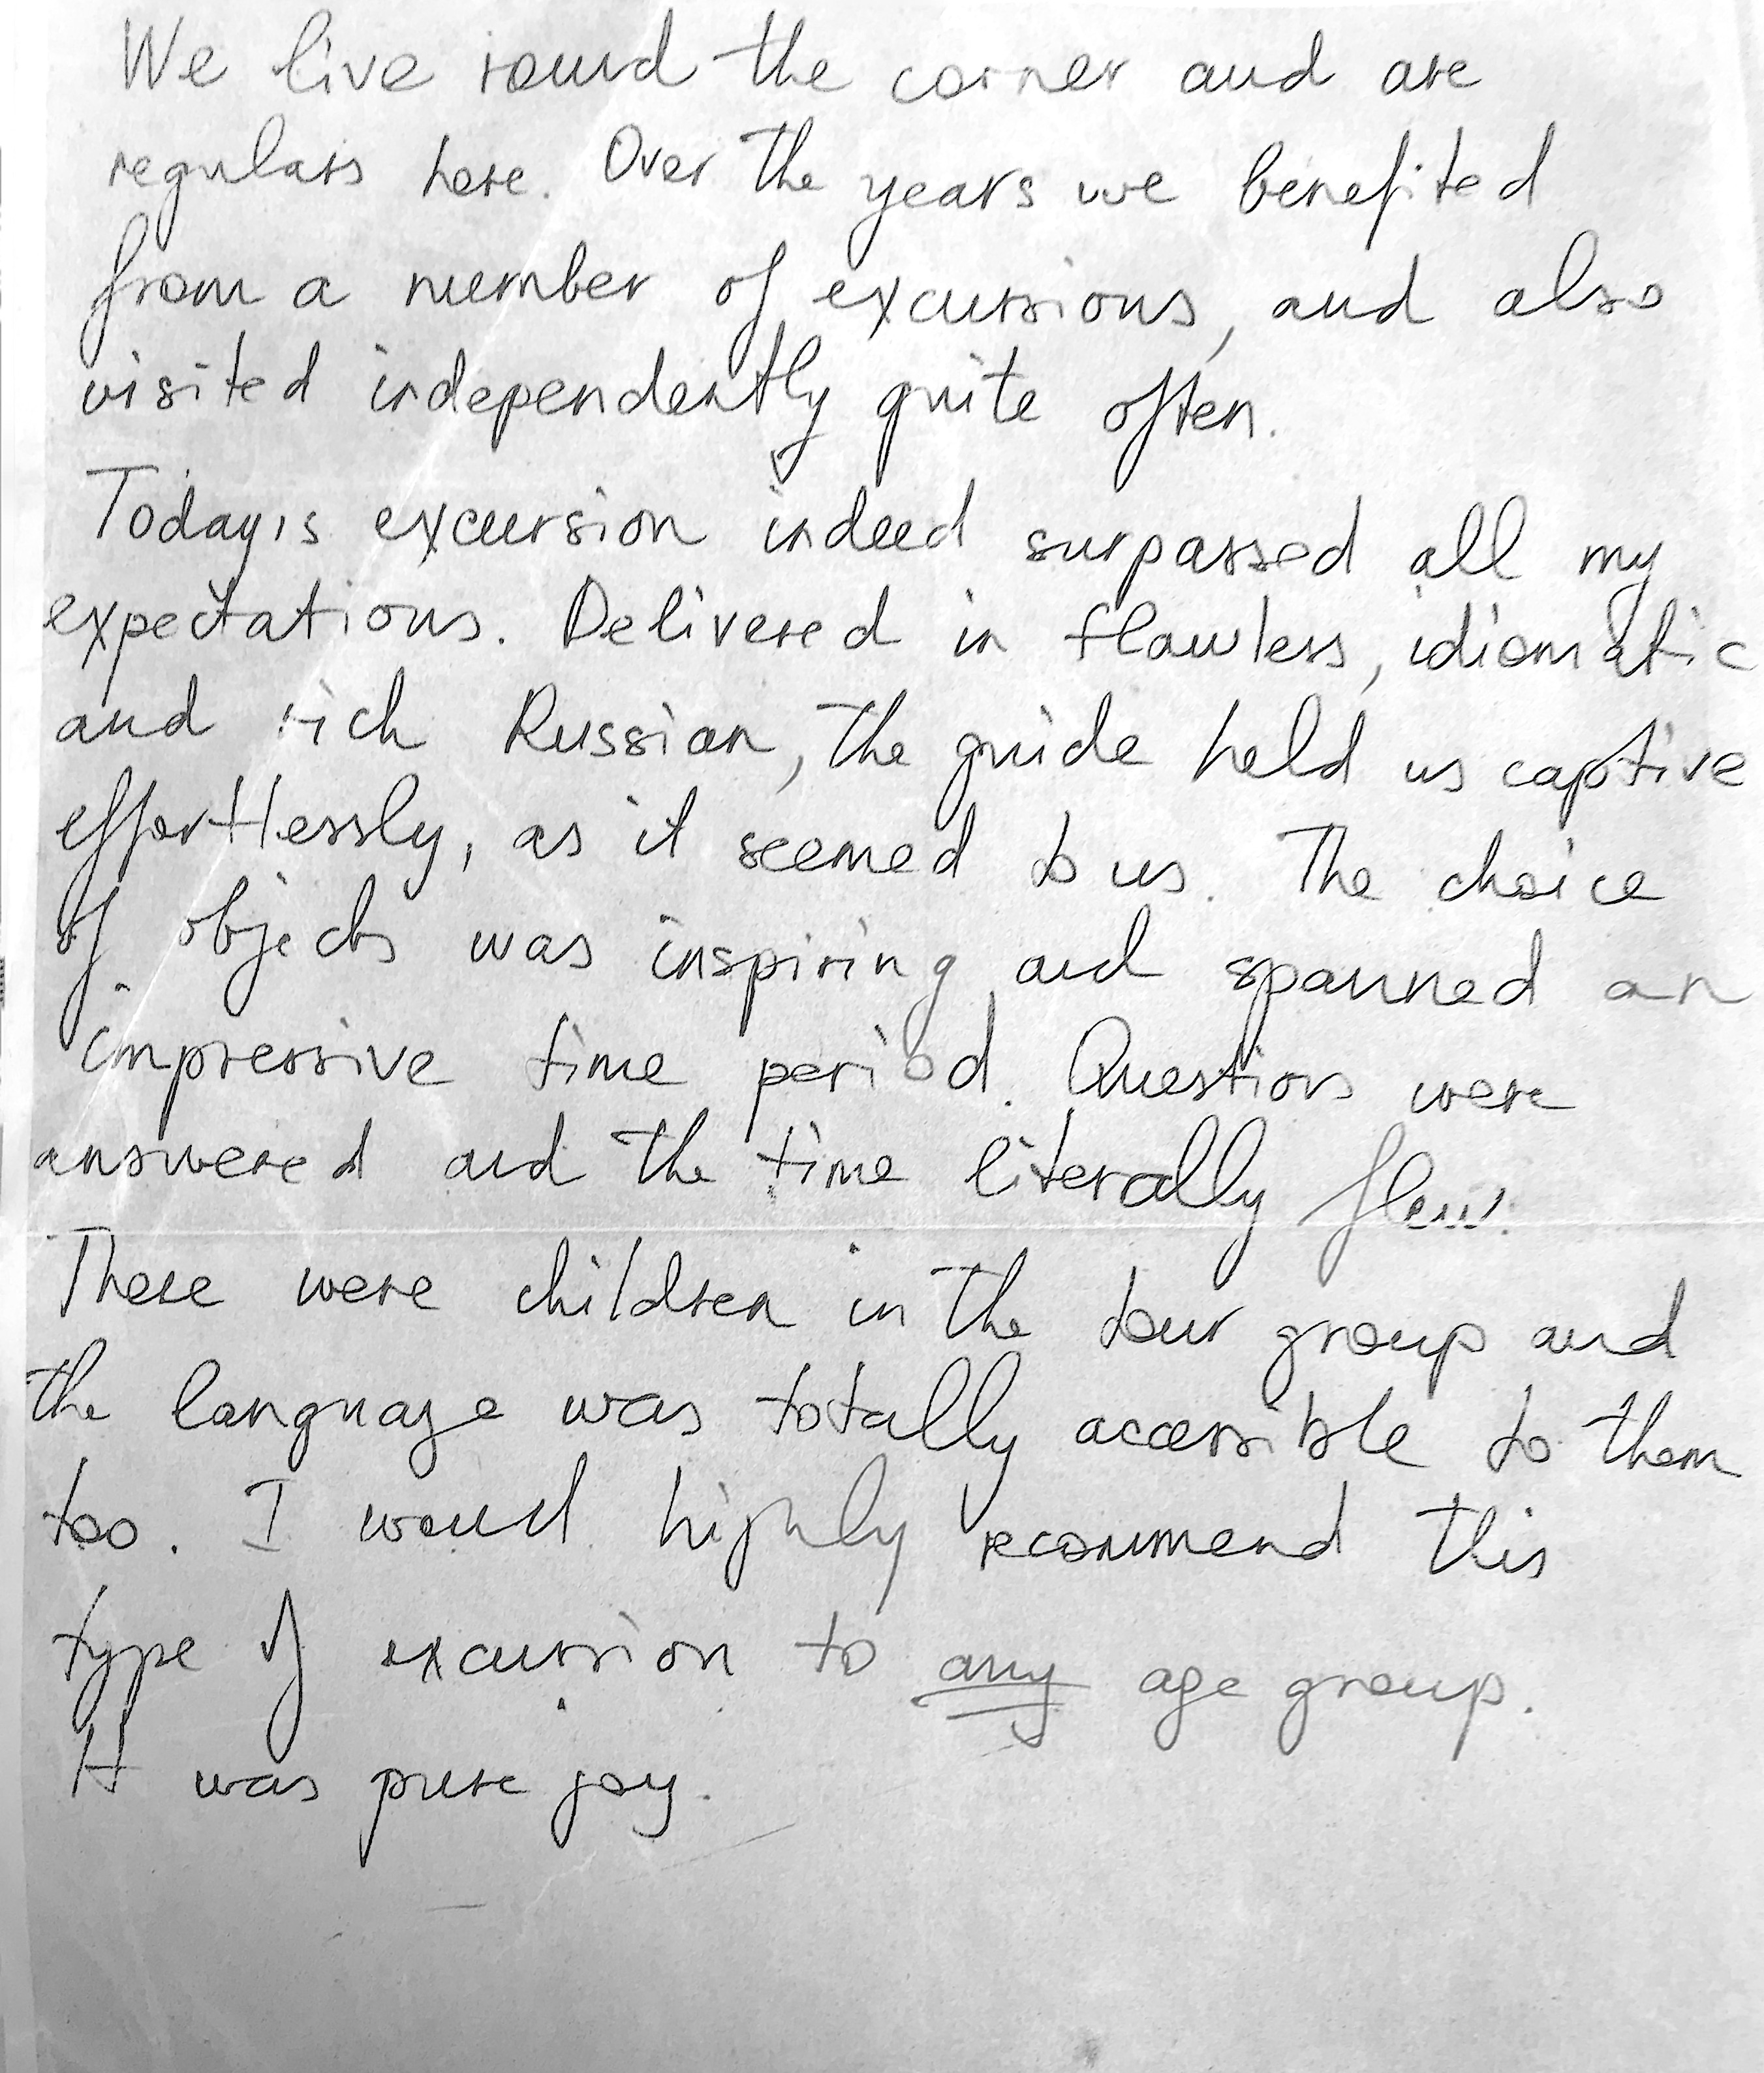 We live round the corner and are
regulars here. Over the years we benefited
from a number of excursions, and also
visited independently quite often.
Today's excursion indeed surpassed all my
expectations. Delivered in flawless, idiomatic
and rich Russian, the guide held us captive
effortlessly, as it seemed to us. The choice
of objects was inspiring and spanned an
impressive time period. Questions were
answered and the time literally flew!
There were children in the tour group and
the language was totally accessible to them
too. I would highly recommend this
type of excursion to any age group.
It was pure joy.